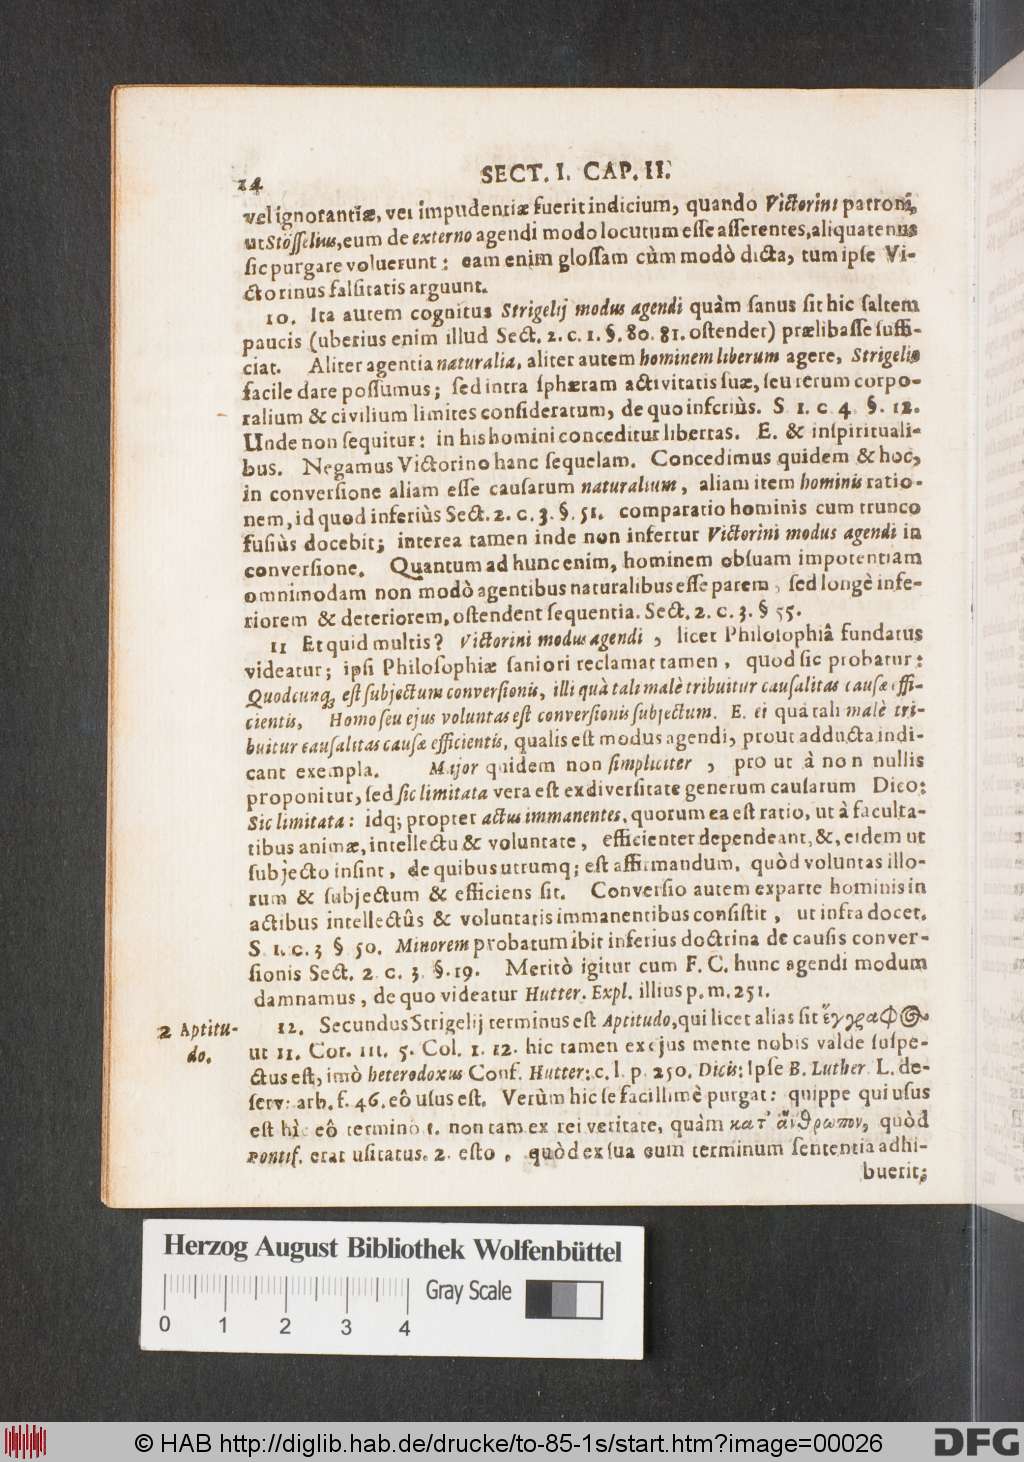 14 SECT. I. CAP. II.
vel ignorantiæ, vel impudentiæ fuerit indicium, quando Victorini patroni,
ut Stösselius, eum de externo agendi modo locutum esse asserentes, aliquatenus
sic purgare voluerunt: eam enim glossam cùm modò dicta, tum ipse Vi-
ctorinus falsitatis arguunt.
10. Ita autem cognitus Strigelij modus agendi quàm sanus sit hic saltem
paucis (uberius enim illud Sect. 2. c. 1. §. 80. 81. ostendet) prælibasse suffi-
ciat. Aliter agentia naturalia, aliter autem hominem liberum agere, Strigelio
facile dare possumus; sed intra sphæram activitatis suæ, seu rerum corpo-
ralium & civilium limites consideratum, de quo inferiùs. S 1. c. 4. §. 12.
Unde non sequitur: in his homini conceditur libertas. E. & in spirituali-
bus. Negamus Victorino hanc sequelam. Concedimus quidem & hoc,
in conversione aliam esse causarum naturalium, aliam item hominis ratio-
nem, id quod inferiùs Sect. 2. c. 3. §. 51. comparatio hominis cum trunco
fusiùs docebit; interea tamen inde non infertur Victorini modus agendi in
conversione. Quantum ad hunc enim, hominem ob suam impotentiam
omnimodam non modò agentibus naturalibus esse parem, sed longè infe-
riorem & deteriorem, ostendent sequentia. Sect. 2. c. 3. § 55.
11 Et quid multis? Victorini modus agendi, licet Philosophiâ fundatus
videatur; ipsi Philosophiæ saniori reclamat tamen, quod sic probatur:
Quodcunq; est subjectum conversionis, illi quà tali malè tribuitur causalitas causæ effi-
cientis, Homo seu ejus voluntas est conversionis subjectum. E. ei quà tali malè tri-
buitur causalitas causæ efficientis, qualis est modus agendi, prout adducta indi-
cant exempla. Major quidem non simpliciter, pro ut à non nullis
proponitur, sed sic limitata vera est ex diversitate generum causarum Dico:
Sic limitata: idq; propter actus immanentes, quorum ea est ratio, ut à faculta-
tibus animæ, intellectu & voluntate, efficienter dependeant, &, eidem ut
subjecto insint, de quibus utrumq; est affirmandum, quòd voluntas illo-
rum & subjectum & efficiens sit. Conversio autem ex parte hominis in
actibus intellectûs & voluntatis immanentibus consistit, ut infra docet.
S. 1. c. 3 § 50. Minorem probatum ibit inferius doctrina de causis conver-
sionis Sect. 2. c. 3. §. 19. Meritò igitur cum F. C. hunc agendi modum
damnamus, de quo videatur Hutter. Expl. illius p. m. 251.
2 Aptitu-
do.
12. Secundus Strigelij terminus est Aptitudo, qui licet alias sit ἔγγραφ@
ut 11. Cor. 111. 5. Col. 1. 12. hic tamen ex ejus mente nobis valde suspe-
ctus est, imò heterodoxus Conf. Hutter: c. l. p. 250. Dicis: Ipse B. Luther. L. de-
serv: arb. f. 46. eô usus est. Verùm hic se facillimè purgat: quippe qui usus
est hìc eô termino 1. non tam ex rei veritate, quàm κατ' ἄνθρωπον, quòd
Pontif. erat usitatus. 2. esto, quòd ex sua cum terminum sententia adhi-
buerit;
Herzog August Bibliothek Wolfenbüttel
Gray Scale
0 1 2 3 4
© HAB http://diglib.hab.de/drucke/to-85-1s/start.htm?image=00026
DFG